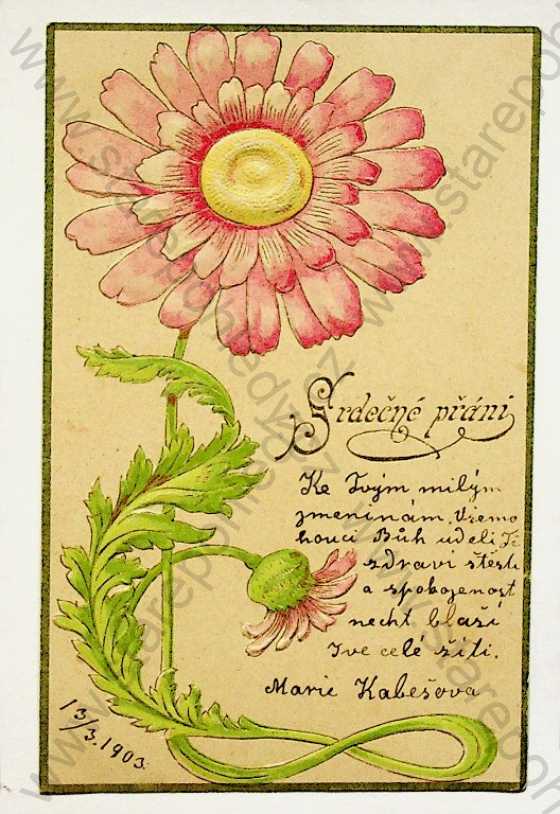 Srdečné přání
Ke Tvým milým
jmeninám, Vzemo
houcí Bůh uděli Ti
zdraví štěstí
a spokojenost
necht blaží
Tve celé žití.
Marie Kabešova
13/3. 1903.
www.starepohledy.cz